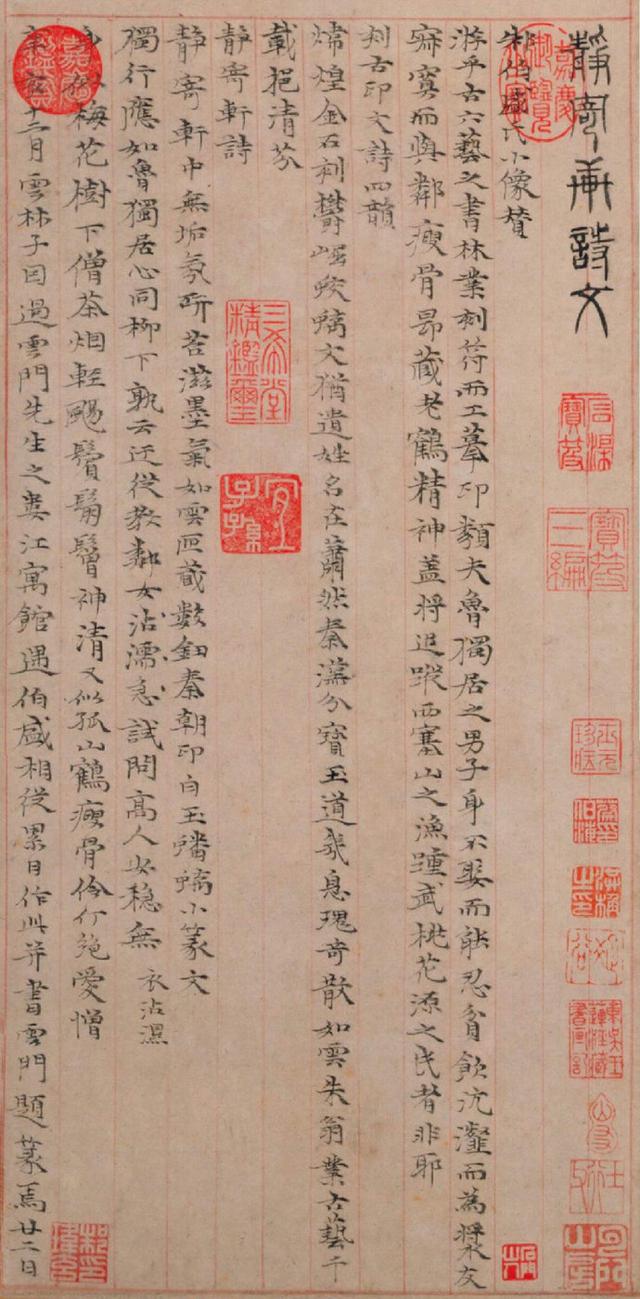 靜寄軒詩文
朱伯盛氏小像賛
游乎古六藝之書林業刻符而工摹印類夫魯獨居之男子身不娶而能忍貧飲沆瀣而為漿友
寂寞而與鄰瘦骨昂藏老鶴精神盖將追蹤西塞山之漁踵武桃花源之民者非耶
刻古印文詩四韻
煒煌金石刻欝崛蛟螭文猶遺姓名在蕭然秦漢分寶玉道幾息瑰奇散如雲朱翁業古藝千
載挹清芬
靜寄軒詩
靜寄軒中無垢氛研苔滋墨氣如雲匣藏數鈕秦朝印白玉蟠螭小篆文
獨行應如魯獨居心同柳下孰云迂從教鄰女沾濡急試問高人安穩無 衣沾濕
身似梅花樹下僧茶烟輕颺鬢鬅鬙神清又似孤山鶴瘦骨伶仃絕愛憎
辛亥十二月雲林子因過雲門先生之婁江寓館遇伯盛相從累日作此并書雲門題篆焉廿二日
嘉慶御覽之寶
三希堂精鑑璽
宜子孫
寶笈三編
嘉慶鑑賞